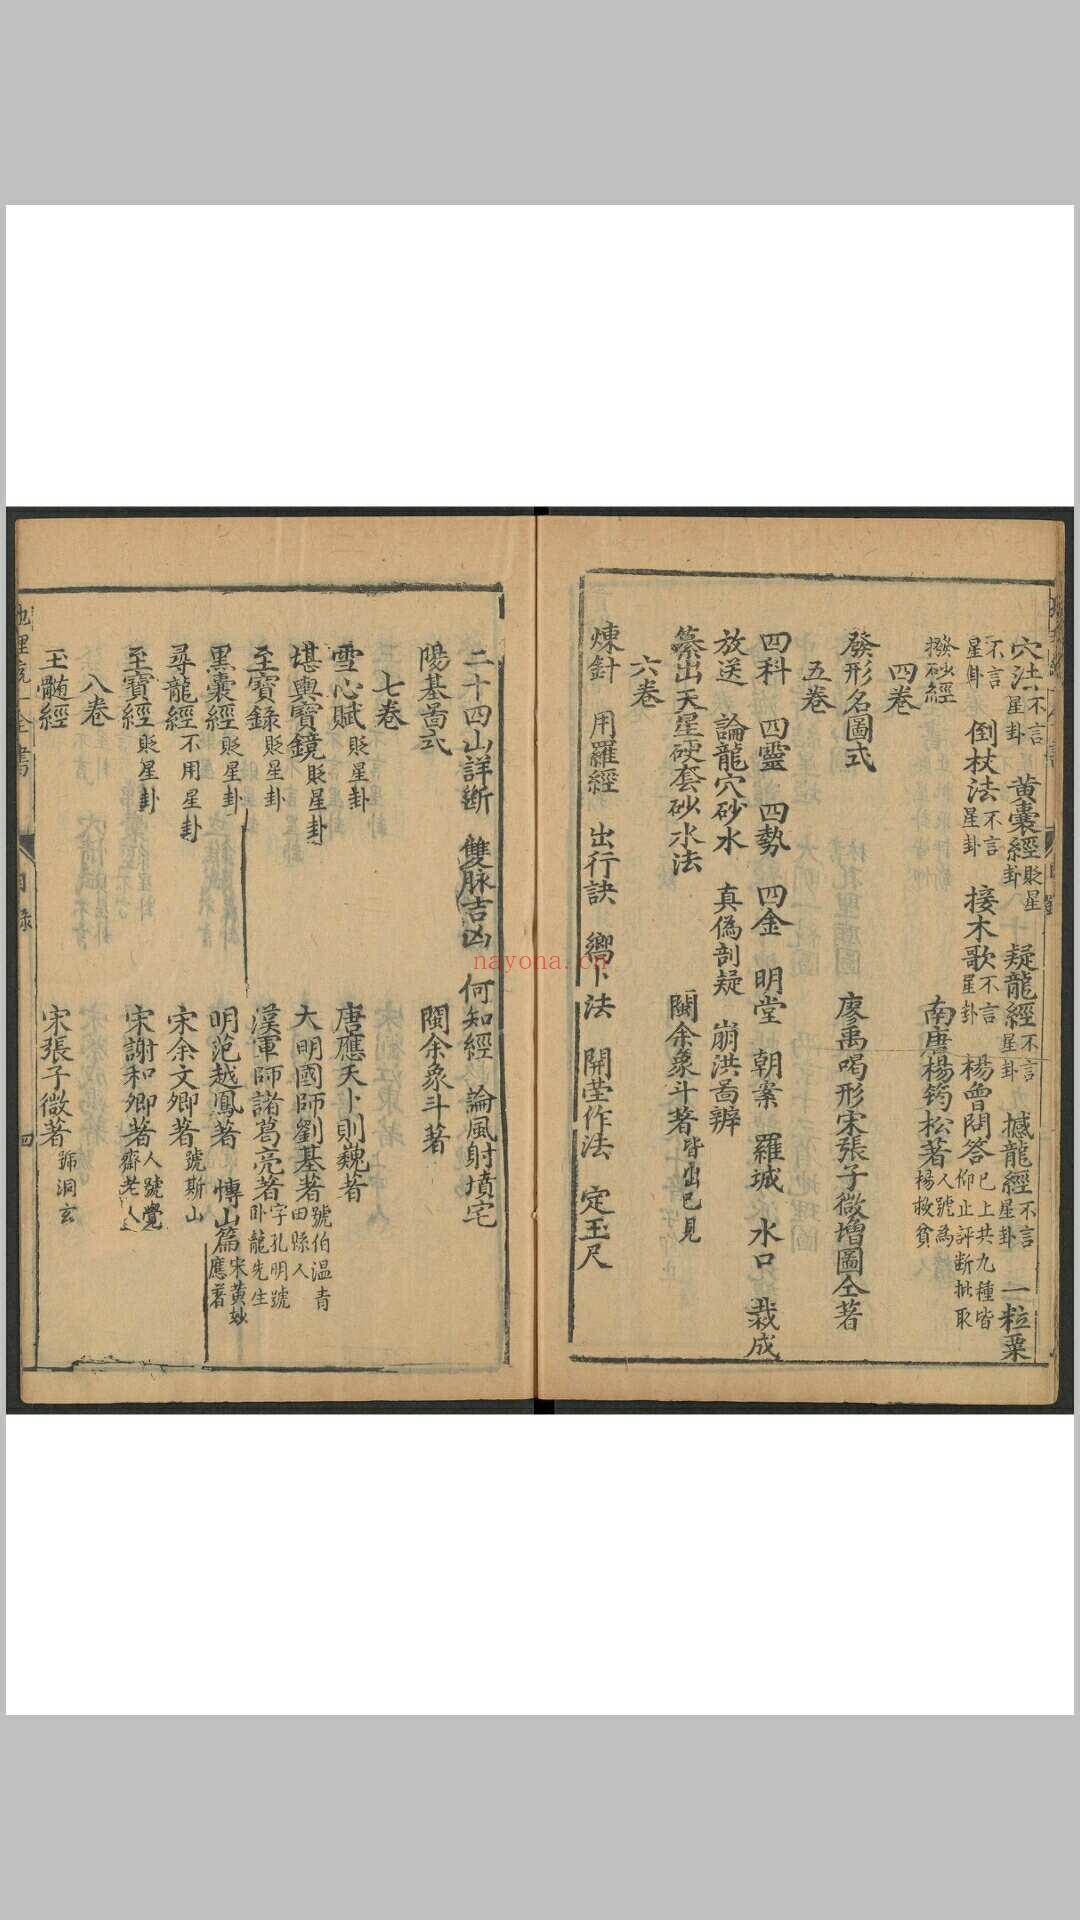 穴法不言星卦 黃囊經貶星卦 疑龍經不言星卦 撼龍經不言星卦 一粒粟
不言星卦 倒杖法不言星卦 接木歌不言星卦 楊曾問答已上共九種皆仰止評斷批取
撥砂經 南唐楊筠松著人號為楊救貧
四卷
發形名圖式 廖禹喝形宋張子微增圖仝著
五卷
四科 四靈 四勢 四金 明堂 朝案 羅城 水口 裁成
放送 論龍穴砂水 真偽剖疑 崩洪啚辨
纂出天星硬套砂水法 閩余象斗著皆出已見
六卷
煉針 用羅經 出行訣 嚮卜法 開塋作法 定玉尺
二十四山詳斷 雙脉吉凶 何知經 論風射墳宅
陽基啚式 閩余象斗著
七卷
雪心賦貶星卦 唐應天卜則巍著
堪輿寶鏡貶星卦 大明國師劉基著號伯温青田縣人
至寶錄貶星卦 漢軍師諸葛亮著字孔明號卧龍先生
黑囊經貶星卦 明范越鳳著 博山篇宋黃妙應著
尋龍經不用星卦 宋余文卿著號斯山
至寶經貶星卦 宋謝和卿著人號覺齋老人
八卷
玉髓經 宋張子微著號洞玄
地理統一全書
目錄
四
nayona.cn